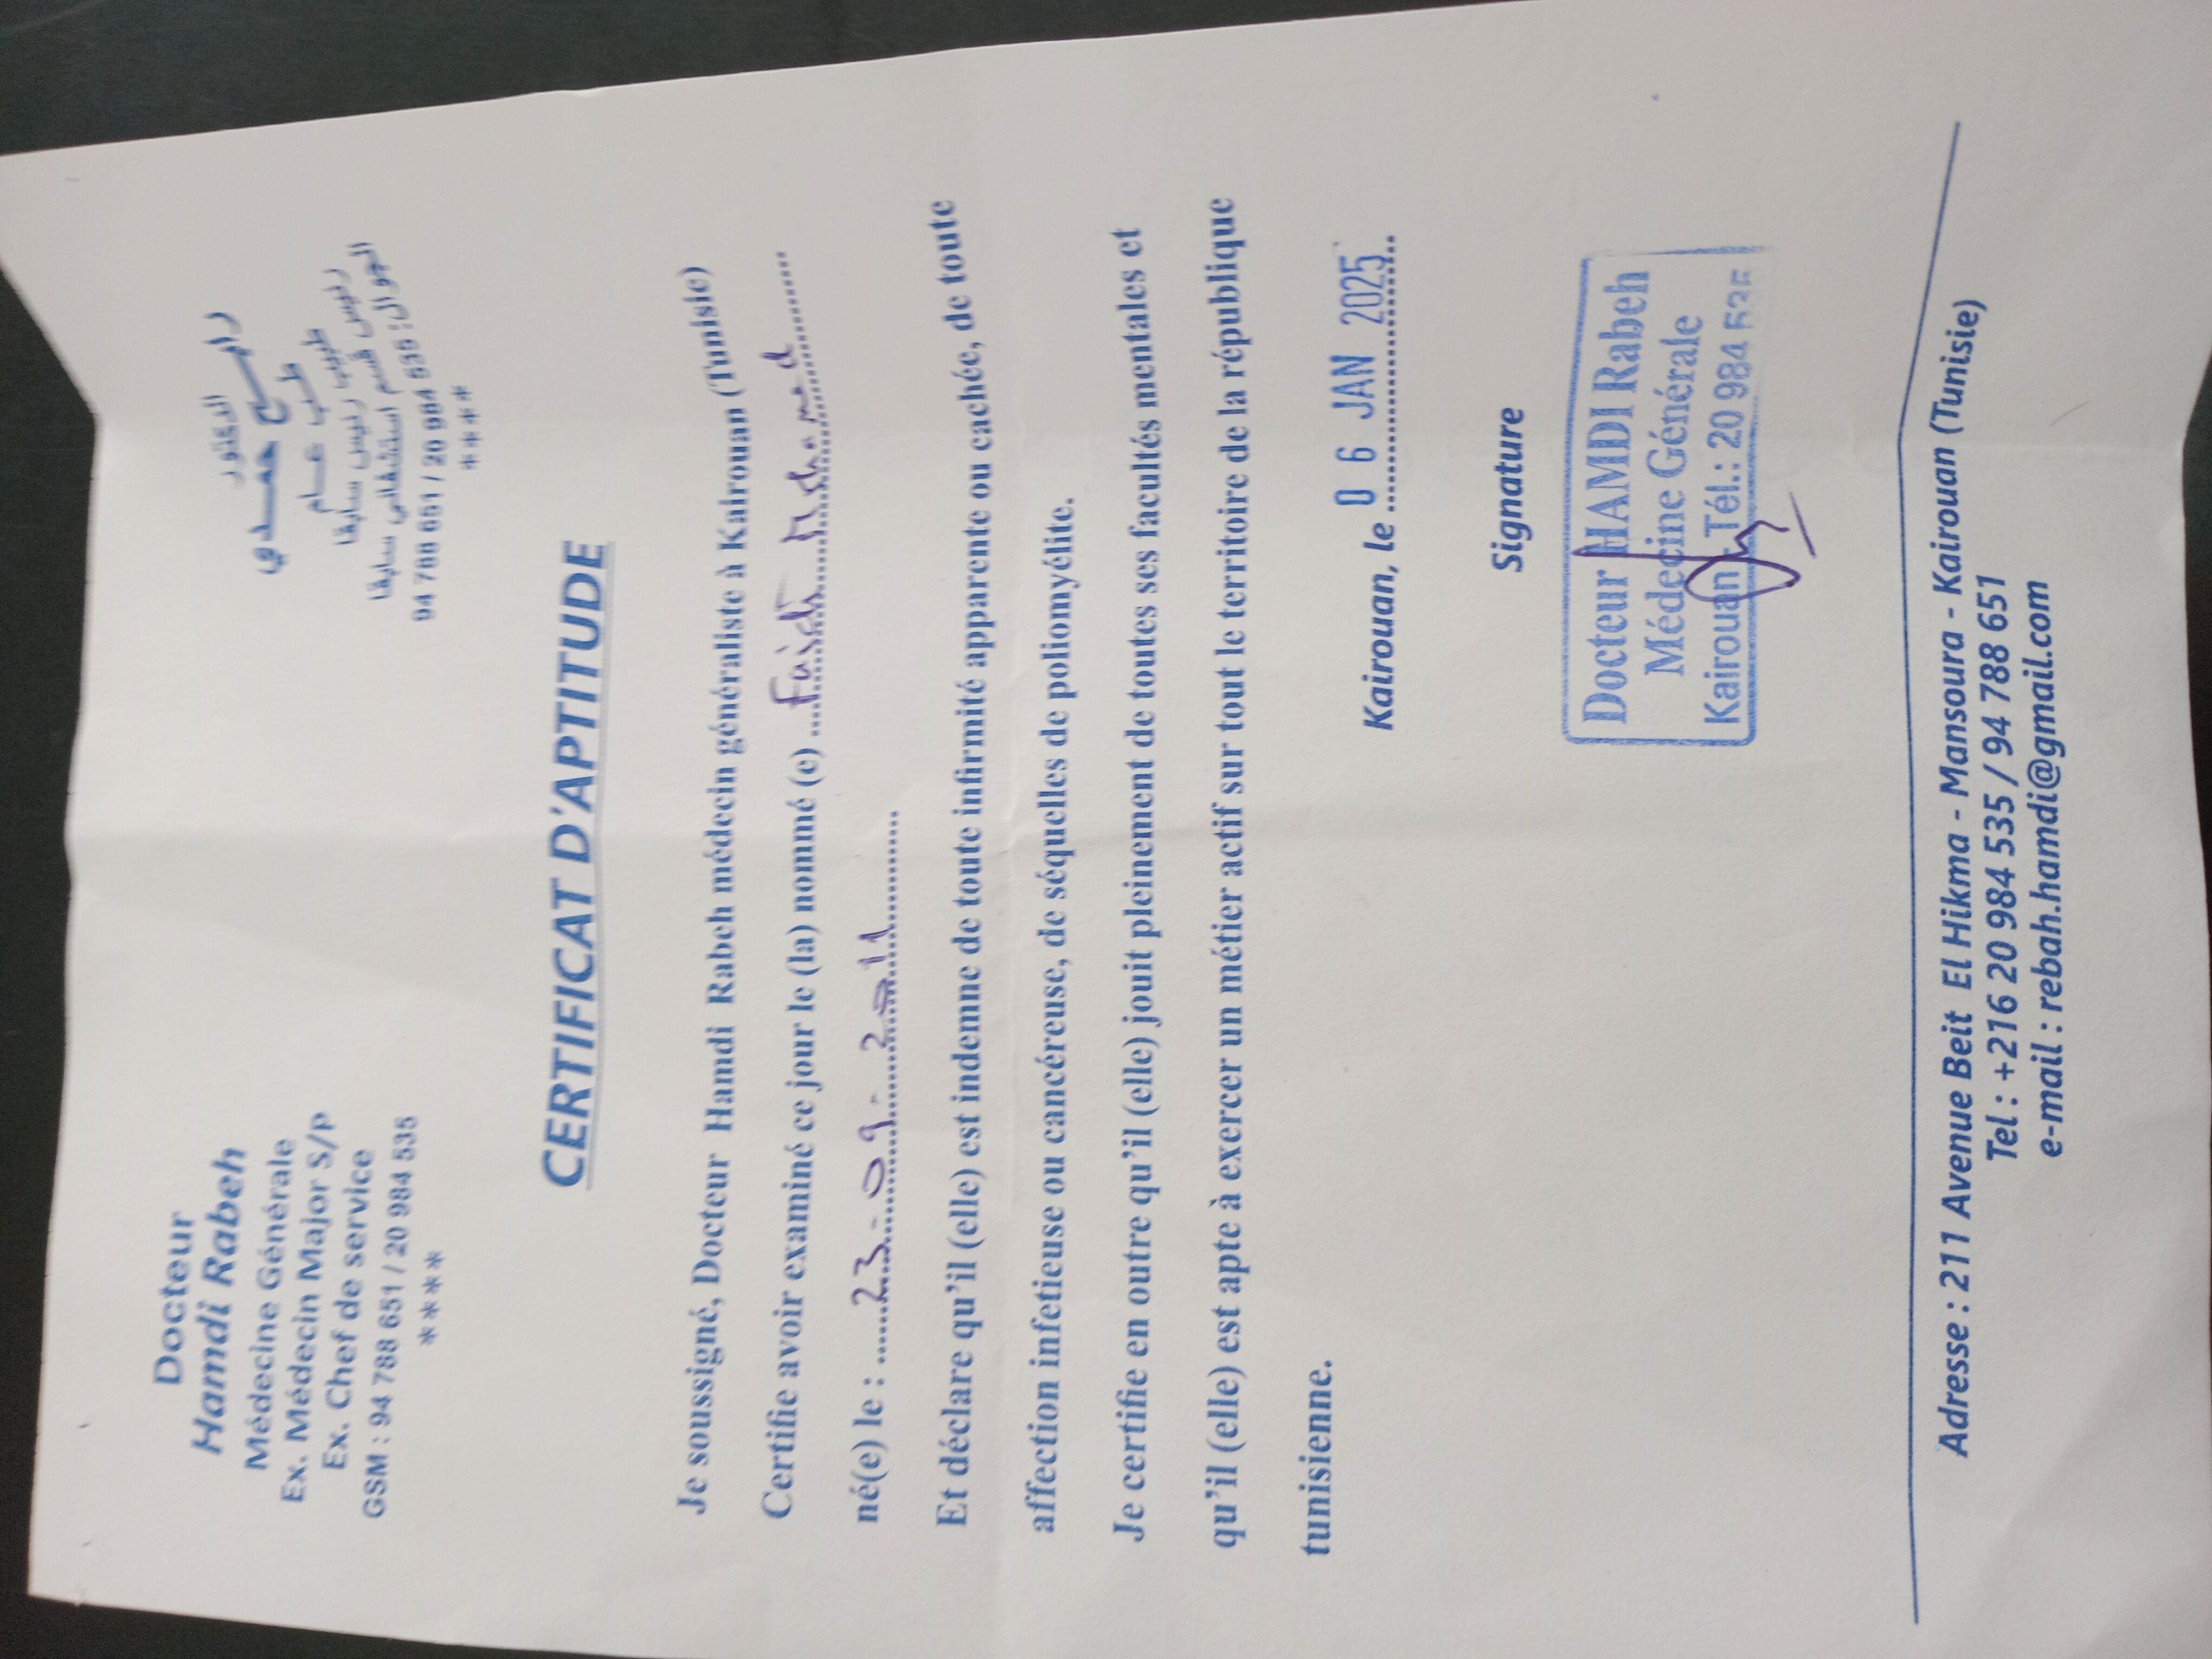 Docteur
Hamdi Rabeh
Médecine Générale
Ex. Médecin Major S/P
Ex. Chef de service
GSM : 94 788 651 / 20 984 535
****
الدكتور
رابح حمدي
طب عام
طبيب رئيس سابقا
رئيس قسم استشفائي سابقا
الجوال: 94 788 651 / 20 984 535
****
CERTIFICAT D'APTITUDE
Je soussigné, Docteur Hamdi Rabeh médecin généraliste à Kairouan (Tunisie)
Certifie avoir examiné ce jour le (la) nommé (e) ....Faidi Mohamed..........
né(e) le : ......23-09-2011..........
Et déclare qu'il (elle) est indemne de toute infirmité apparente ou cachée, de toute
affection infetieuse ou cancéreuse, de séquelles de poliomyélite.
Je certifie en outre qu'il (elle) jouit pleinement de toutes ses facultés mentales et
qu'il (elle) est apte à exercer un métier actif sur tout le territoire de la république
tunisienne.
Kairouan, le 0 6 JAN 2025
Signature
Docteur HAMDI Rabeh
Médecine Générale
Kairouan Tél.: 20 984 535
Adresse : 211 Avenue Beit El Hikma - Mansoura - Kairouan (Tunisie)
Tel : +216 20 984 535 / 94 788 651
e-mail : rebah.hamdi@gmail.com